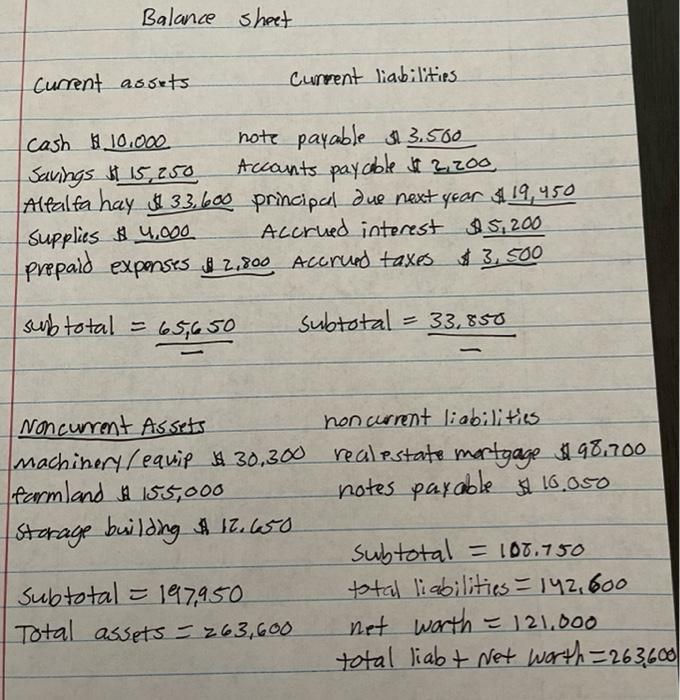 Balance sheet
Current assets Current liabilities
Cash $ 10,000 note payable $ 3,500
Savings $ 15,250 Accounts payable $ 2,200
Alfalfa hay $ 33,600 principal due next year $ 19,450
Supplies $ 4,000 Accrued interest $ 5,200
prepaid expenses $ 2,800 Accrued taxes $ 3,500
subtotal = 65,650 Subtotal = 33,850
Noncurrent Assets noncurrent liabilities
Machinery/equip $ 30,300 real estate mortgage $ 98,700
farmland $ 155,000 notes payable $ 10,050
Storage building $ 12,650
Subtotal = 108,750
Subtotal = 197,950 total liabilities = 142,600
Total assets = 263,600 net worth = 121,000
total liab + Net Worth = 263,600